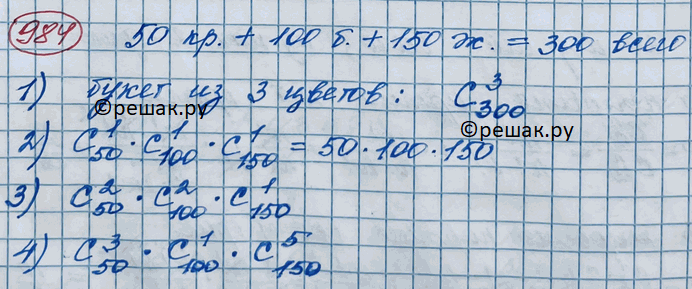 984 50 кр. + 100 б. + 150 ж. = 300 всего
1) букет из 3 цветов: C³₃₀₀
©решак.ру
©решак.ру
2) C¹₅₀ · C¹₁₀₀ · C¹₁₅₀ = 50 · 100 · 150
3) C²₅₀ · C²₁₀₀ · C¹₁₅₀
4) C³₅₀ · C¹₁₀₀ · C⁵₁₅₀